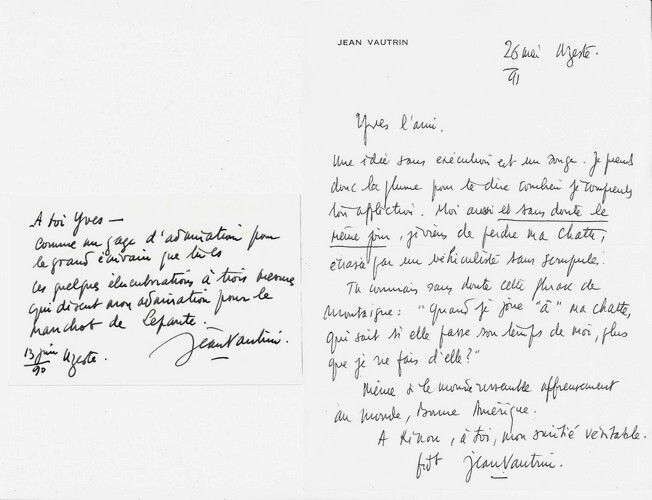 A toi Yves —
Comme un gage d'admiration pour
le grand écrivain que tu es
ces quelques élucubrations à trois
qui disent mon admiration pour le
manchot de Lepante.
Jean Vautrin.
13 juin Uzeste.
90
JEAN VAUTRIN
26 mai Uzeste.
91
Yves l'ami.
Une idée sans exécution est un songe. Je prends
donc la plume pour te dire combien je comprends
ton affliction. Moi aussi et sans doute le
même jour, je viens de perdre ma chatte,
écrasée par un véhiculiste sans scrupule.
Tu connais sans doute cette phrase de
Montaigne : "Quand je joue "à" ma chatte,
qui sait si elle passe son temps de moi, plus
que je ne fais d'elle ?"
Même si le monde ressemble affreusement
au monde, Amérique.
A , à toi, mon amitié véritable.
Jean Vautrin.